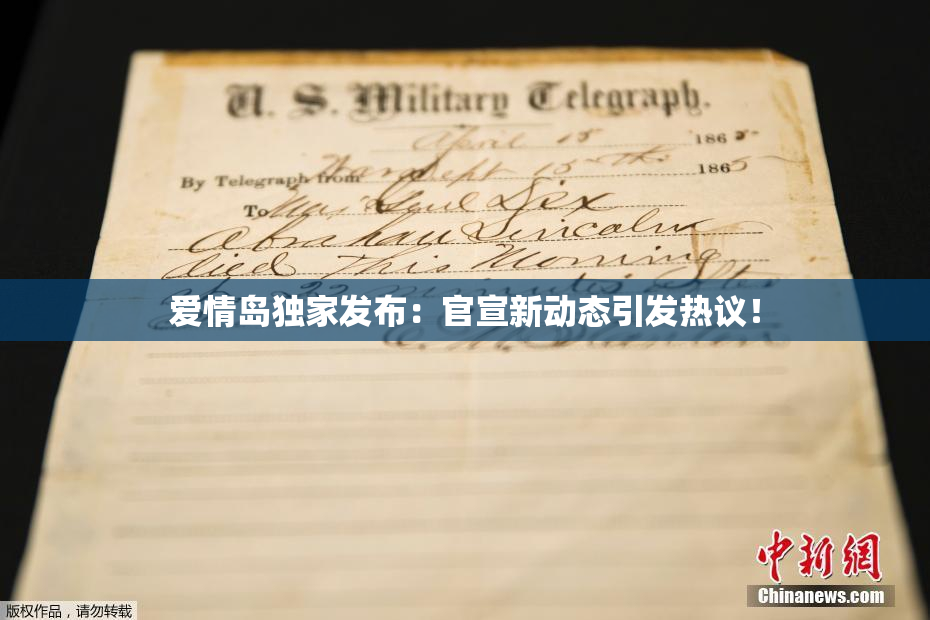 U. S. Military Telegraph.
April 15 1865
By Telegraph from War Dept 15th 1865
To Maj Genl Dix
Abraham Lincoln
died This Morning
at 22 minutes after
爱情岛独家发布：官宣新动态引发热议！
E. M. Stanton
中新网
Chinanews.com
版权作品，请勿转载